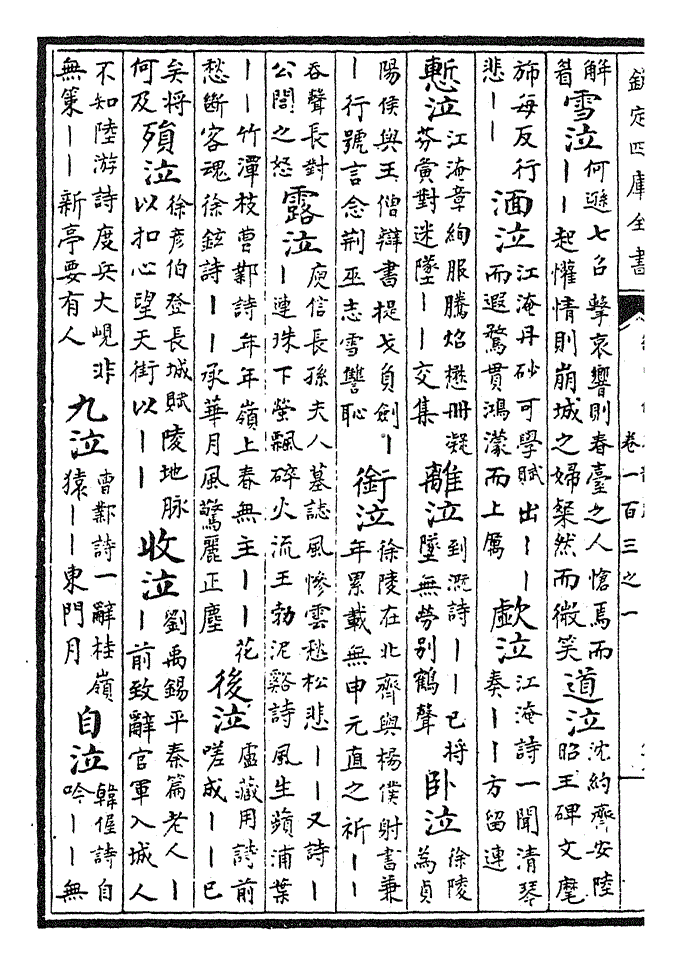 欽定四庫全書
卷一百三之一
解
着
雪泣
何遜七召擊哀響則春臺之人愴焉而
丨丨起懽情則崩城之婦粲然而微笑
道泣
沈約齊安陸
昭王碑文麾
旆每反行
悲丨丨
湎泣
江淹丹砂可學賦出丨丨
而遐騖貫鴻濛而上厲
歔泣
江淹詩一聞清琴
奏丨丨方留連
慙泣
江淹章絢服騰焰懋冊凝
芬黄對迷墜丨丨交集
離泣
到溉詩丨丨已將
墜無勞別鶴聲
卧泣
徐陵
為貞
陽侯與王僧辯書提戈負劍丨
丨行號言念荆巫志雪讐恥
銜泣
徐陵在北齊與楊僕射書兼
年累載無申元直之祈丨丨
吞聲長對
公閭之怒
露泣
庾信長孫夫人墓誌風慘雲愁松悲丨丨又詩丨
丨連珠下螢飄碎火流王勃泥谿詩風生蘋浦葉
丨丨竹潭枝曹鄴詩年年嶺上春無主丨丨花
愁斷客魂徐鉉詩丨丨承華月風驚麗正塵
後泣
盧藏用詩前
嗟成丨丨已
矣將
何及
殞泣
徐彥伯登長城賦陵地脉
以扣心望天街以丨丨
收泣
劉禹錫平秦篇老人丨
丨前致辭官軍入城人
不知陸游詩度兵大峴非
無策丨丨新亭要有人
九泣
曹鄴詩一辭桂嶺
猿丨丨東門月
自泣
韓偓詩自
吟丨丨無